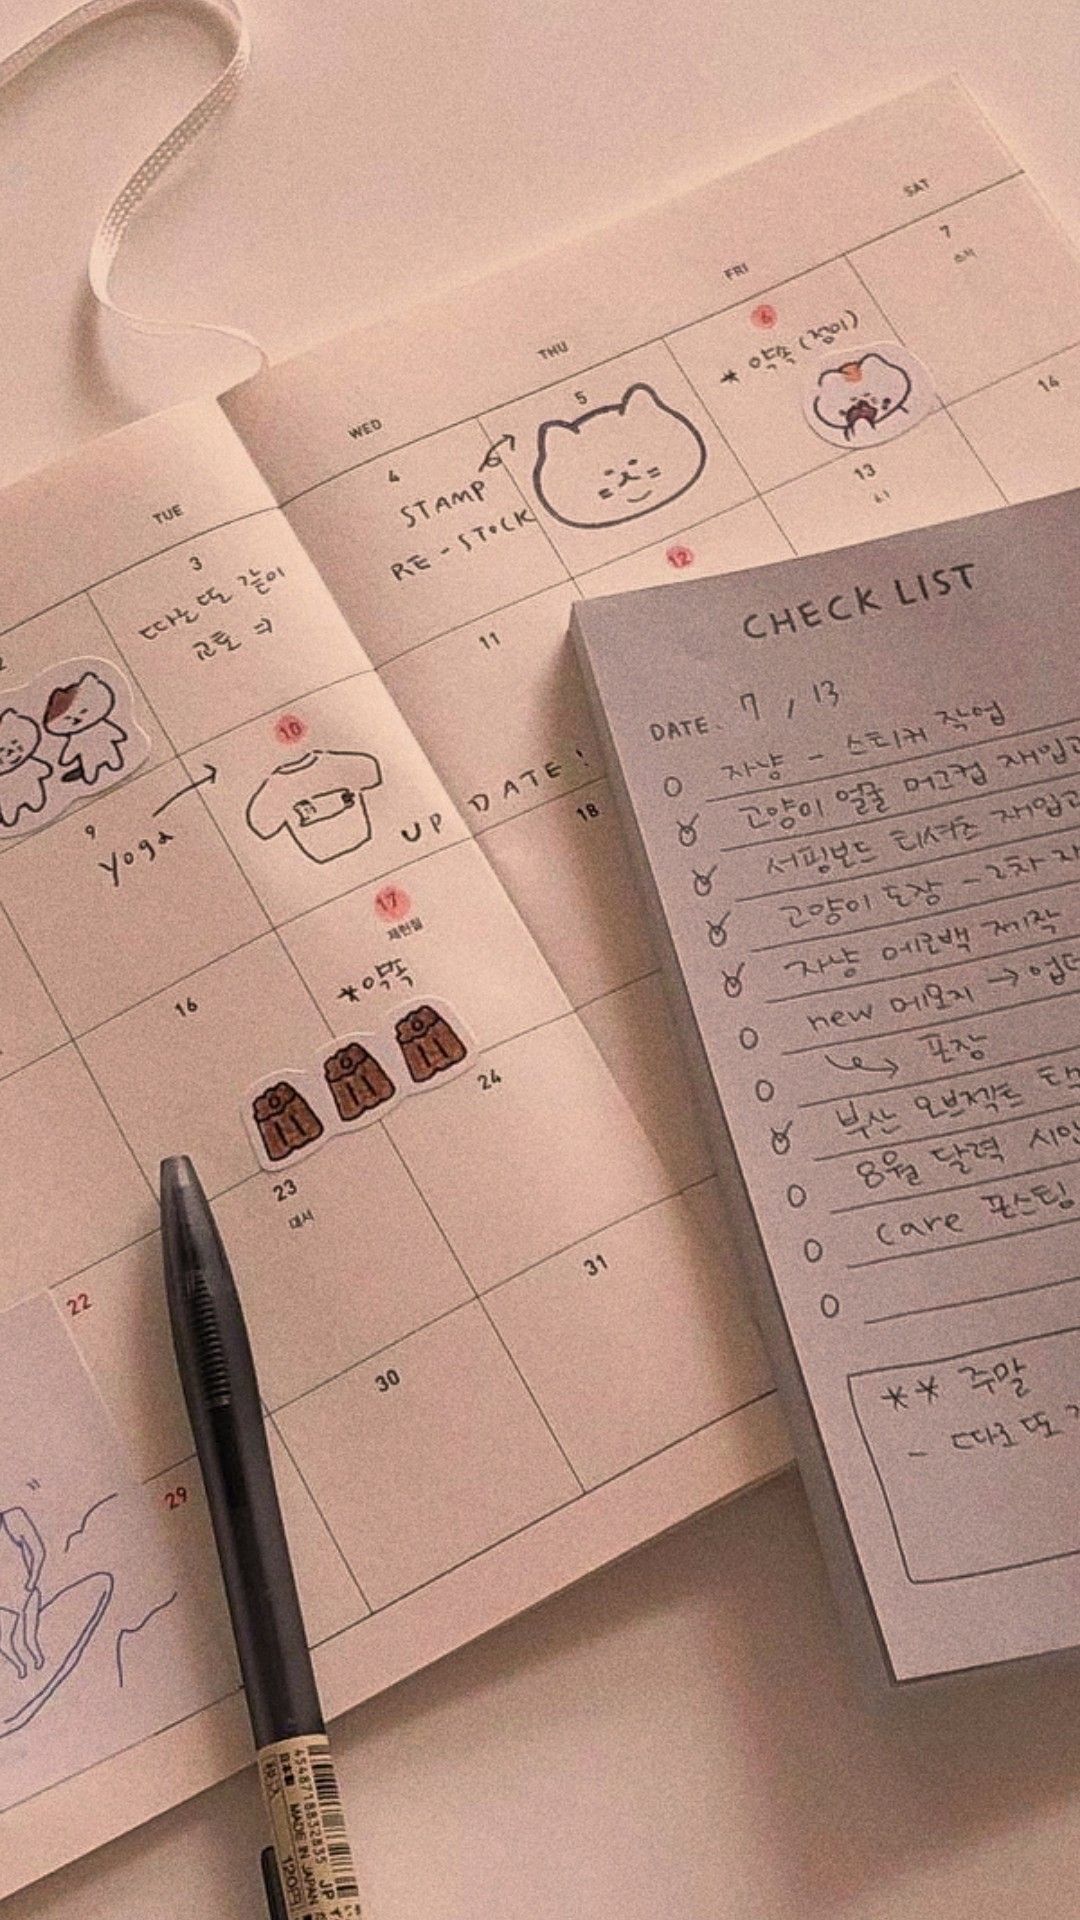 SAT
7
소서
FRI
6
* 약속 (정이)
THU
5
WED
4
STAMP
RE-STOCK
TUE
3
따로 또 같이
교토
14
13
12
11
10
9
Yoga
UP DATE!
18
17
제헌절
*약속
16
24
23
대서
22
31
30
29
CHECK LIST
DATE. 7 / 13
자냥 - 스티커 작업
고양이 얼굴 머그컵 재입고
서핑보드 티셔츠 재입고
고양이 도장 - 2차
자냥 에코백 제작
new 메모지 →
포장
부산 오브젝트
8월 달력 시안
care 포스팅
** 주말
- 따로 또
4548718832835
日本製
MADE IN JAPAN
税込
120円
JP